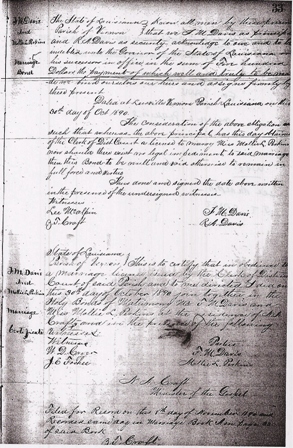 33
F. M. Davis
And
Mollie Perkins
Marriage
Bond
The State of Louisiana } Know all men by these presents
Parish of Vernon } that we F. M. Davis as principal
and R. A. Davis as security, acknowledge to owe and to be
indebted unto the Governor of the State of Louisiana
his successors in office in the sum of Five hundred
Dollars the payment of which well and truly to be made
we bind ourselves our heirs and assigns firmly by
these present
Dated at Leesville Vernon Parish Louisiana on this
30th day of Oct 1890.
The consideration of the above obligation is
such that whereas the above principal has this day obtained
of the Clerk of Dist Court a license to marry Miss Mollie Perkins
now should there exist no legal impediment to said marriage
then this Bond to be null and void otherwise to remain in
full force and
Thus done and signed the date above written
in the presence of the undersigned witnesses
Witnesses
Lee McAlpin F. M. Davis
R. A. Davis
F. M. Davis
And
Mollie Perkins
Marriage
Certificate
State of Louisiana }
Parish of Vernon } This is to certify that in obedience to
a marriage license issued by the Clerk of District
Court of said Parish and to me directed I did on
this 30th day of October 1890 join together in the
Holy Bonds of Matrimony Mr F. M. Davis and
Miss Mollie Perkins at the residence of
Craft and in the presence of the following
Witnesses
Witnesses Parties
F. M. Davis
J. E. Fisher Mollie Perkins
Craft
Minister of the Gospel
Filed for Record on this day of November 1890 and
Recorded same day in Marriage Book
of said Book
Craft